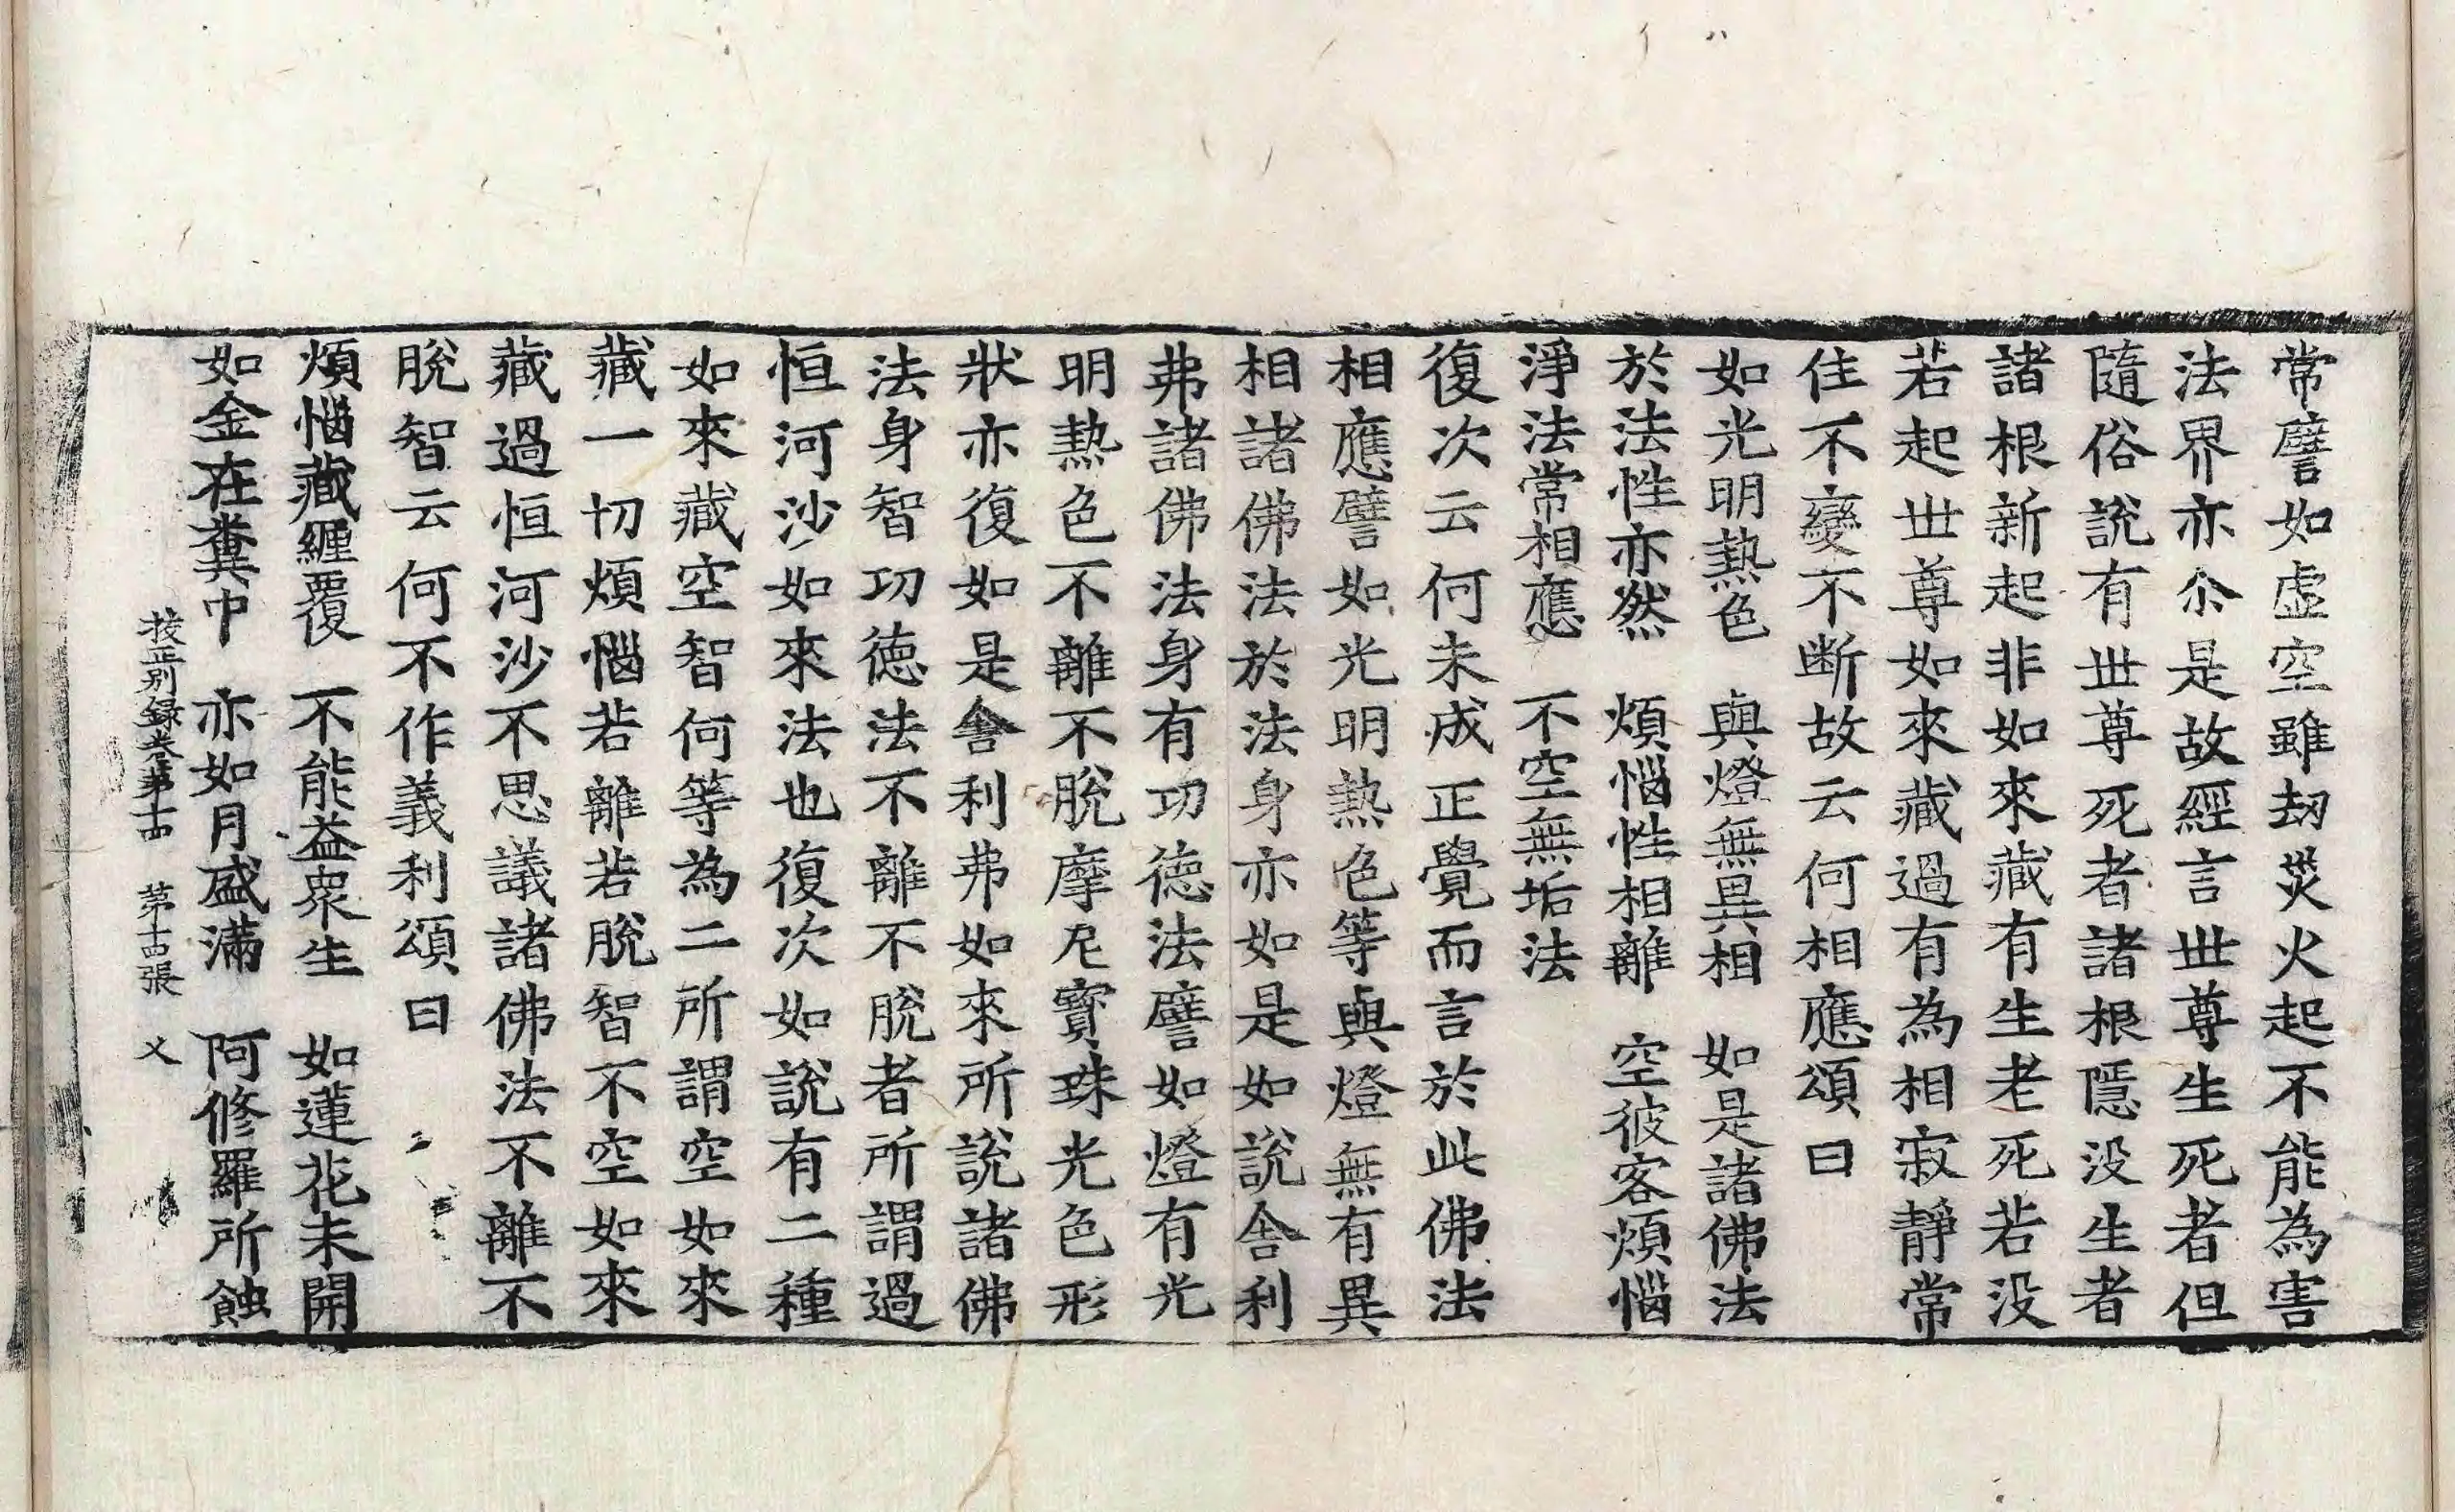 常譬如虛空雖劫災火起不能為害
法界亦尒是故經言世尊生死者但
隨俗說有世尊死者諸根隱没生者
諸根新起非如來藏有生老死若没
若起世尊如來藏過有為相寂靜常
住不變不断故云何相應頌曰
如光明熱色　與燈無異相　如是諸佛法
於法性亦然　煩惱性相離　空彼客煩惱
淨法常相應　不空無垢法
復次云何未成正覺而言於此佛法
相應譬如光明熱色等與燈無有異
相諸佛法於法身亦如是如說舍利
弗諸佛法身有功德法譬如燈有光
明熱色不離不脫摩尼寶珠光色形
狀亦復如是舍利弗如來所說諸佛
法身智功德法不離不脫者所謂過
恒河沙如來法也復次如說有二種
如來藏空智何等為二所謂空如來
藏一切煩惱若離若脫智不空如來
藏過恒河沙不思議諸佛法不離不
脫智云何不作義利頌曰
煩惱藏纏覆　不能益衆生　如蓮花未開
如金在糞中　亦如月盛滿　阿修羅所蝕
挍正別錄卷苐十四　苐十四張　乂